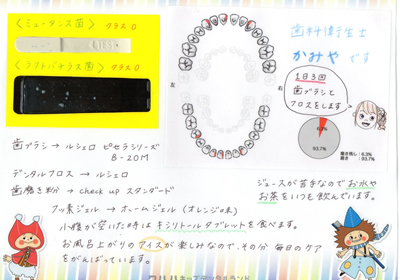 〈ミュータンス菌〉 クラス0
〈ラクトバチラス菌〉 クラス0
歯科衛生士
かみや です
左
右
1日3回
歯ブラシと
フロスをします
6.3%
93.7%
磨き残し:6.3%
磨き:93.7%
歯ブラシ → ルシェロ ピセラシリーズ
B-20M
デンタルフロス → ルシェロ
歯磨き粉 → check up スタンダード
フッ素ジェル → ホームジェル (オレンジ味)
小腹が空いた時は キシリトールタブレットを食べます。
お風呂上がりの アイスが楽しみなので、その分 毎日のケア
をがんばっています。
ジュースが苦手なので お水や
お茶をいつも飲んでいます。
キッズデンタルランド